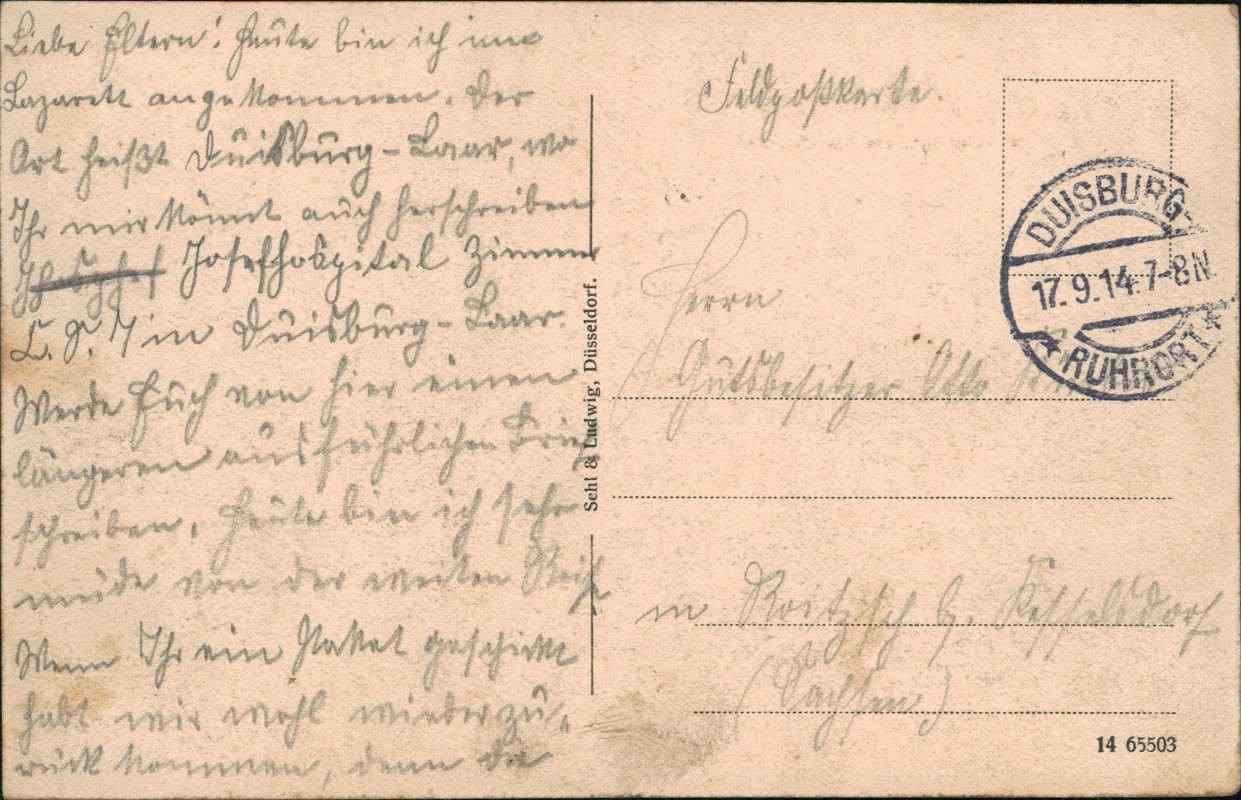 Liebe Eltern! Heute bin ich im
Lazarett angekommen. Der
Ort heißt Duisburg-Laar, wo
Ihr mir könnt auch herschreiben
Josefhospital Zimmer
in Duisburg-Laar.
Werde Euch von hier einen
längeren ausführlichen Brief
schreiben. Heute bin ich sehr
müde von der weiten Reise
Wenn Ihr ein Paket geschickt
habt wir wohl wieder zu-
rück kommen, denn die
Sehl & Ludwig, Düsseldorf.
Feldpostkarte.
DUISBURG-
17.9.14.7-8N.
* RUHRORT *
Herrn
Gutsbesitzer Otto
in Roitzsch b. Kesselsdorf
(Sachsen)
14 65503